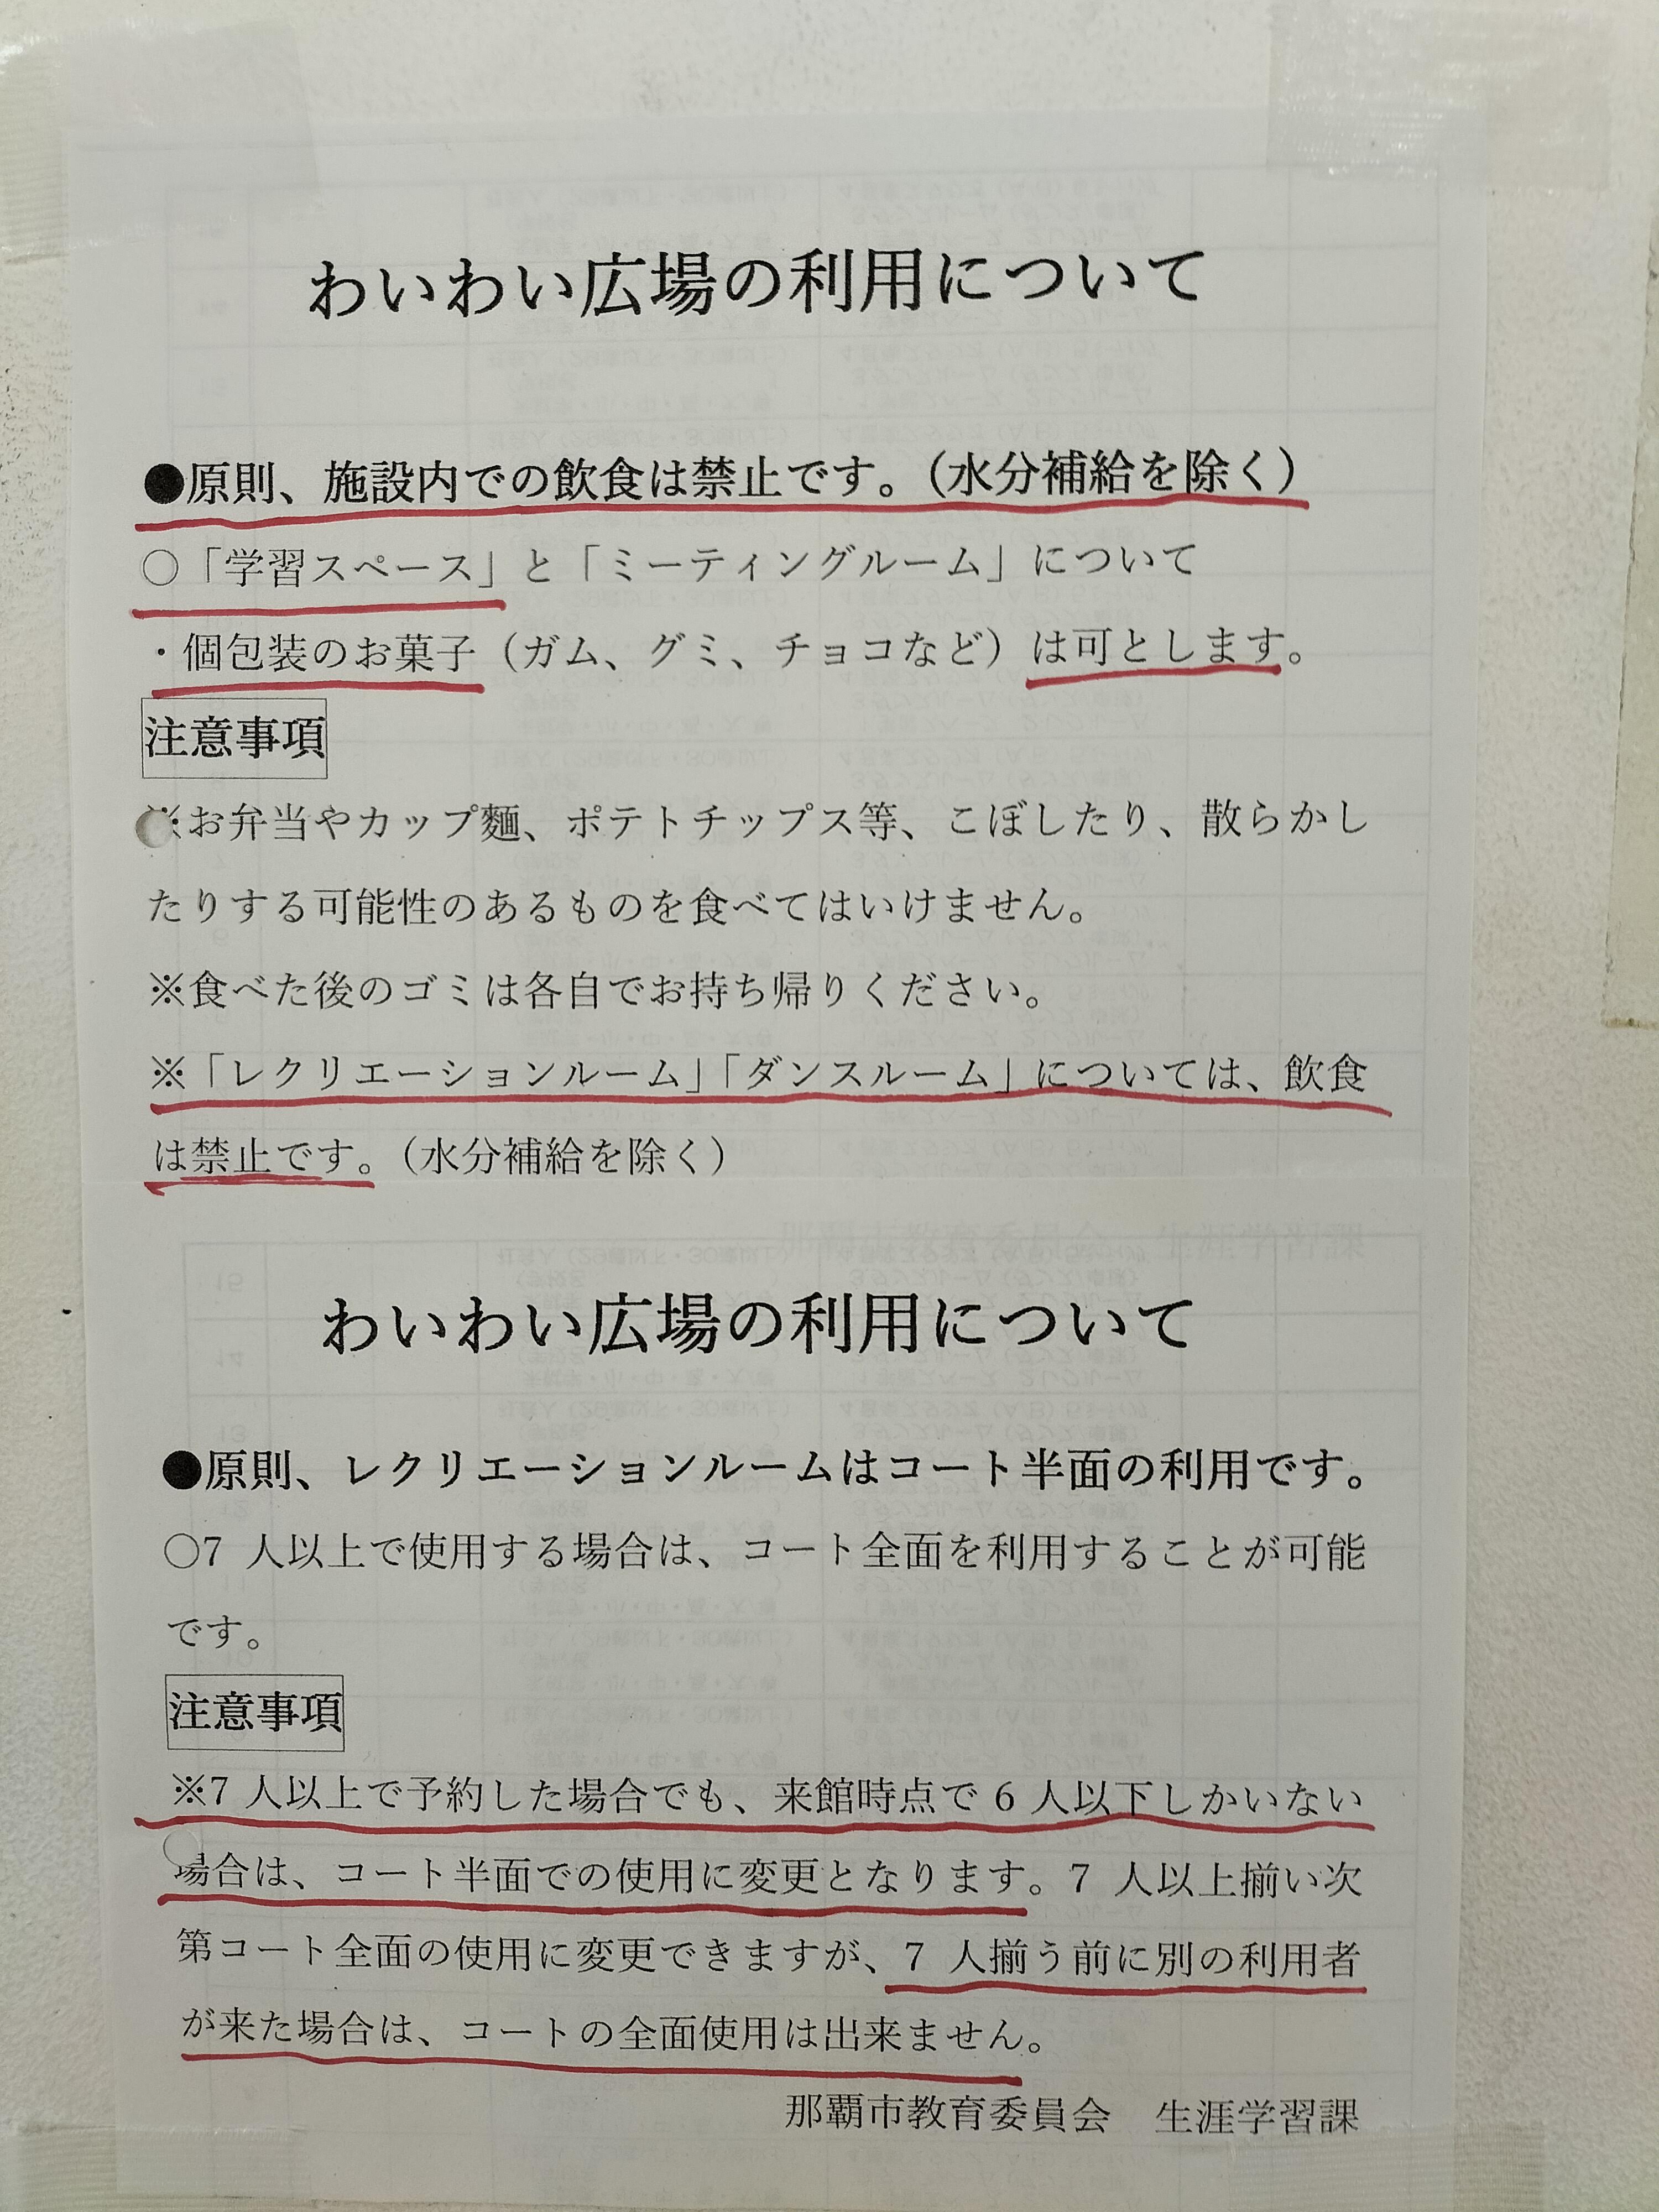 わいわい広場の利用について
●原則、施設内での飲食は禁止です。（水分補給を除く）
○「学習スペース」と「ミーティングルーム」について
・個包装のお菓子（ガム、グミ、チョコなど）は可とします。
注意事項
※お弁当やカップ麺、ポテトチップス等、こぼしたり、散らかし
たりする可能性のあるものを食べてはいけません。
※食べた後のゴミは各自でお持ち帰りください。
※「レクリエーションルーム」「ダンスルーム」については、飲食
は禁止です。（水分補給を除く）
那覇市教育委員会　生涯学習課
わいわい広場の利用について
●原則、レクリエーションルームはコート半面の利用です。
○7 人以上で使用する場合は、コート全面を利用することが可能
です。
注意事項
※7 人以上で予約した場合でも、来館時点で 6 人以下しかいない
場合は、コート半面での使用に変更となります。7 人以上揃い次
第コート全面の使用に変更できますが、7 人揃う前に別の利用者
が来た場合は、コートの全面使用は出来ません。
那覇市教育委員会　生涯学習課